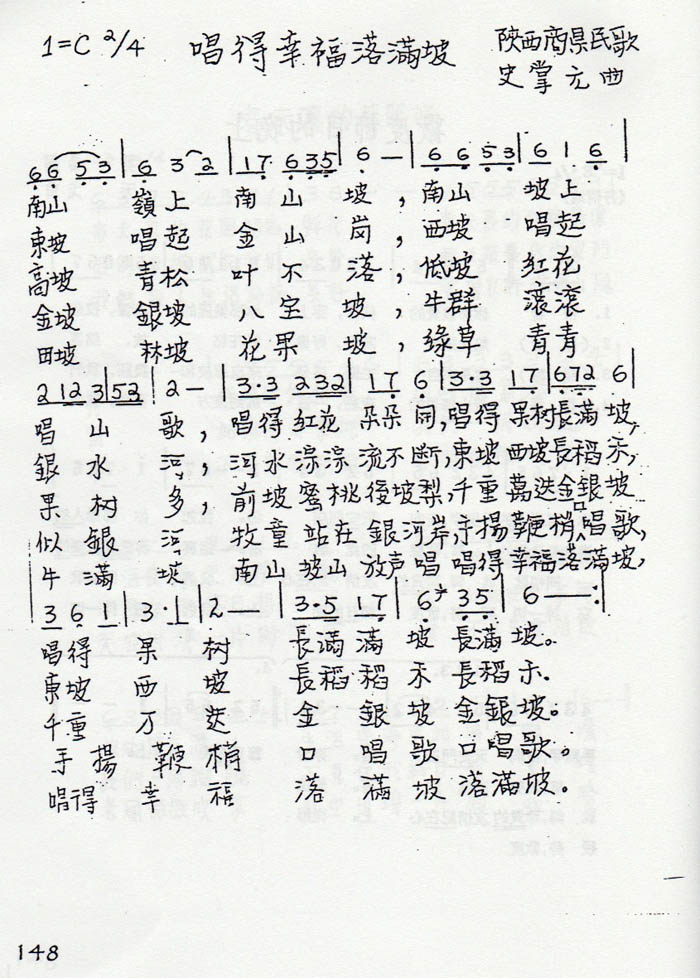 1=C 2/4 唱得幸福落滿坡 陝西商県民歌
史掌元曲
66 53 | 6 3 2 | 17 6 35 | 6 — | 6 6 5 3 | 6 1 6 |
南山 嶺上 南山 坡，南山 坡上
東坡 唱起 金山 崗，西坡 唱起
高坡 青松 叶不 落，低坡 紅花
金坡 銀坡 八宝 坡，牛群 滾滾
田坡 林坡 花果 坡，綠草 青青
2 12 3 | 5 3 2 | 2 — | 3·3 2 3 2 | 1 7 6 | 3·3 1 7 | 6 7 2 6 |
唱山 歌，唱得紅花 朵朵開，唱得果树長滿坡，
銀水 河，河水淙淙 流不断，東坡西坡長稻禾，
果树 多，前坡蜜桃 後坡梨，千重萬迭金銀坡
似銀 河 牧童站在 銀河岸，手揚鞭梢口唱歌，
牛滿 坡 南山坡山 放声唱 唱得幸福落滿坡，
3 6 1 | 3·1 | 2 — | 3·5 1 7 | 6 3 5 | 6 — :
唱得 果 树 長滿 滿 坡 長滿坡。
東坡 西 坡 長稻 稻 禾 長稻禾.
千重 万 迭 金 銀 坡 金銀坡。
手揚 鞭 梢 口 唱 歌 口唱歌。
唱得 幸 福 落 滿 坡 落滿坡。
148